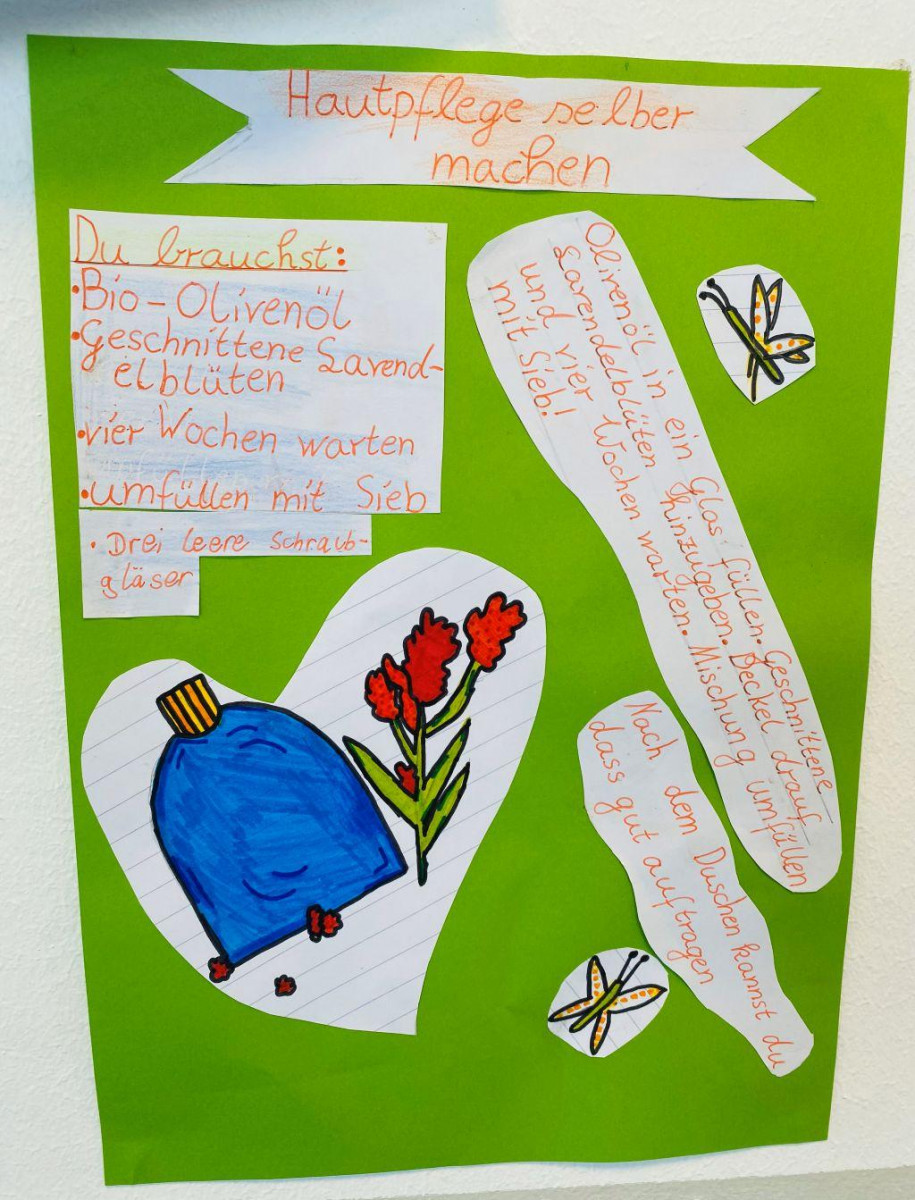 Hautpflege selber
machen
Du brauchst:
• Bio-Olivenöl
• Geschnittene Lavend-
elblüten
• vier Wochen warten
• umfüllen mit Sieb
• Drei leere Schraub-
gläser
Olivenöl in ein Glas füllen. Geschnittene
Lavendelblüten hinzugeben. Deckel drauf
und vier Wochen warten. Mischung umfüllen
mit Sieb!
Nach dem Duschen kannst du
dass gut auftragen